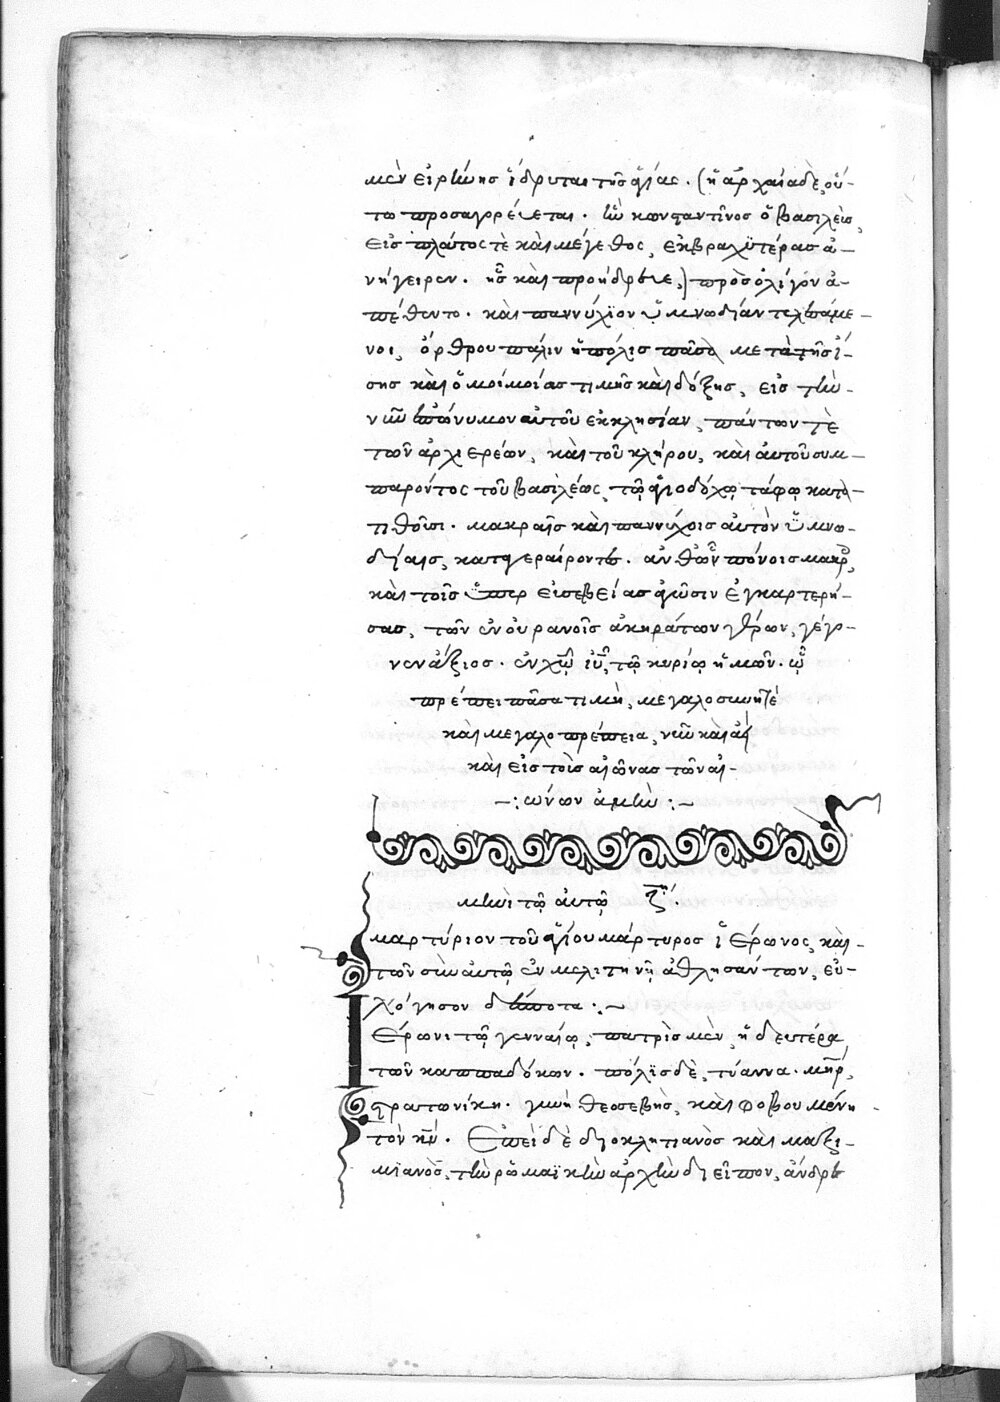 μὲν εἰρήνης ἵδρυται τῆς ἁγίας. (ἡ ἀρχαία δὲ, οὕ-
τω προσαγορεύεται. ἣν κωνσταντῖνος ὁ βασιλεὺς,
εἰς πλάτος τὲ καὶ μέγεθος, ἐκ βραχυτέρας ἀ-
νήγειρεν. ἧς καὶ προήδρευε,) πρὸς ὀλίγον ἀ-
πέθεντο. καὶ παννύχιον ὑμνωδίαν τελεσάμε-
νοι, ὄρθρου πάλιν ἡ πόλις πᾶσα μετὰ τῆς ἴ-
σης καὶ ὁμοίας τιμῆς καὶ δόξης, εἰς τὴν
νῦν ἐπώνυμον αὐτοῦ ἐκκλησίαν, πάντων τὲ
τῶν ἀρχιερέων, καὶ τοῦ κλήρου, καὶ αὐτοῦ συμ-
παρόντος τοῦ βασιλέως, τῷ ἁγιοδόχῳ τάφῳ κατα-
τιθοῦσι. μακραῖς καὶ παννύχοις αὐτὸν ὑμνω-
δίαις, καταγεραίροντες. ἀνθ' ὧν πόνοις μακροῖς,
καὶ τοῖς ὑπὲρ εὐσεβείας ἀγῶσιν ἐγκαρτερή-
σας, τῶν ἐν οὐρανοῖς ἀκηράτων γερῶν, γέγο-
νεν ἄξιος. ἐν χῶ ἰῦ, τῷ κυρίῳ ἡμῶν. ᾧ
πρέπει πᾶσα τιμὴ, μεγαλοσύνη τὲ
καὶ μεγαλοπρέπεια, νῦν καὶ ἀεὶ
καὶ εἰς τοὺς αἰῶνας τῶν αἰ-
-:ώνων ἀμήν:-
μηνὶ τῷ αὐτῷ ζ'.
μαρτύριον τοῦ ἁγίου μάρτυρος ἱέρωνος, καὶ-
τῶν σὺν αὐτῷ ἐν μελιτηνῇ ἀθλησάντων, εὐ-
λόγησον δέσποτα:-
Ιέρωνι τῷ γενναίῳ, πατρὶς μὲν, ἡ δευτέρα
τῶν καππαδόκων. πόλις δὲ, τύαννα. μηρ,
στρατωνίκη. γυνὴ θεοσεβὴς, καὶ φοβουμένη
τὸν κν. Ἐπεὶ δὲ διοκλητιανὸς καὶ μαξι-
μιανὸς, τὴν ῥωμαϊκὴν ἀρχὴν διεῖπον, ἄνδρες